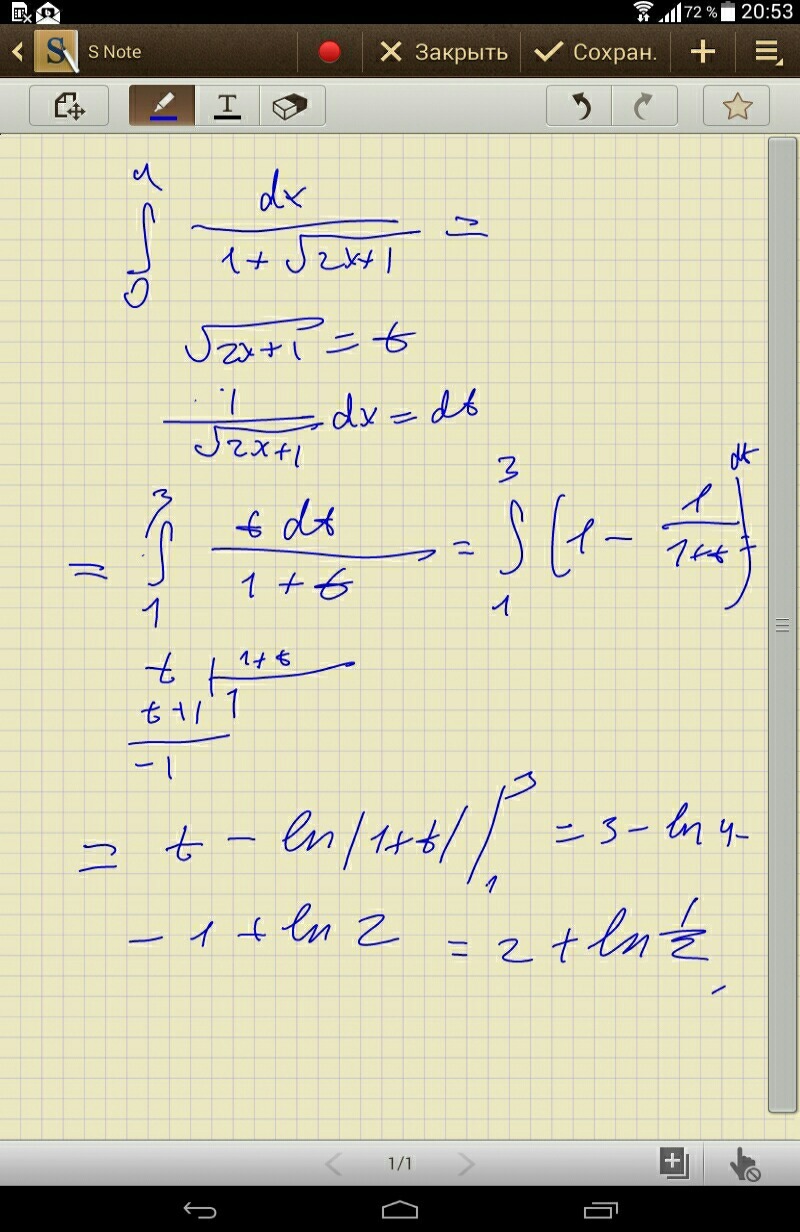 72 % 20:53
S Note Закрыть Сохран.
T
4
∫ dx / (1 + √(2x+1)) =
0
√(2x+1) = t
1 / √(2x+1) dx = dt
= ∫₁³ t dt / (1 + t) = ∫₁³ (1 - 1/(1+t)) dt =
t | 1+t
t+1 1
-1
= t - ln|1+t| |₁³ = 3 - ln 4 -
- 1 + ln 2 = 2 + ln 1/2
1/1